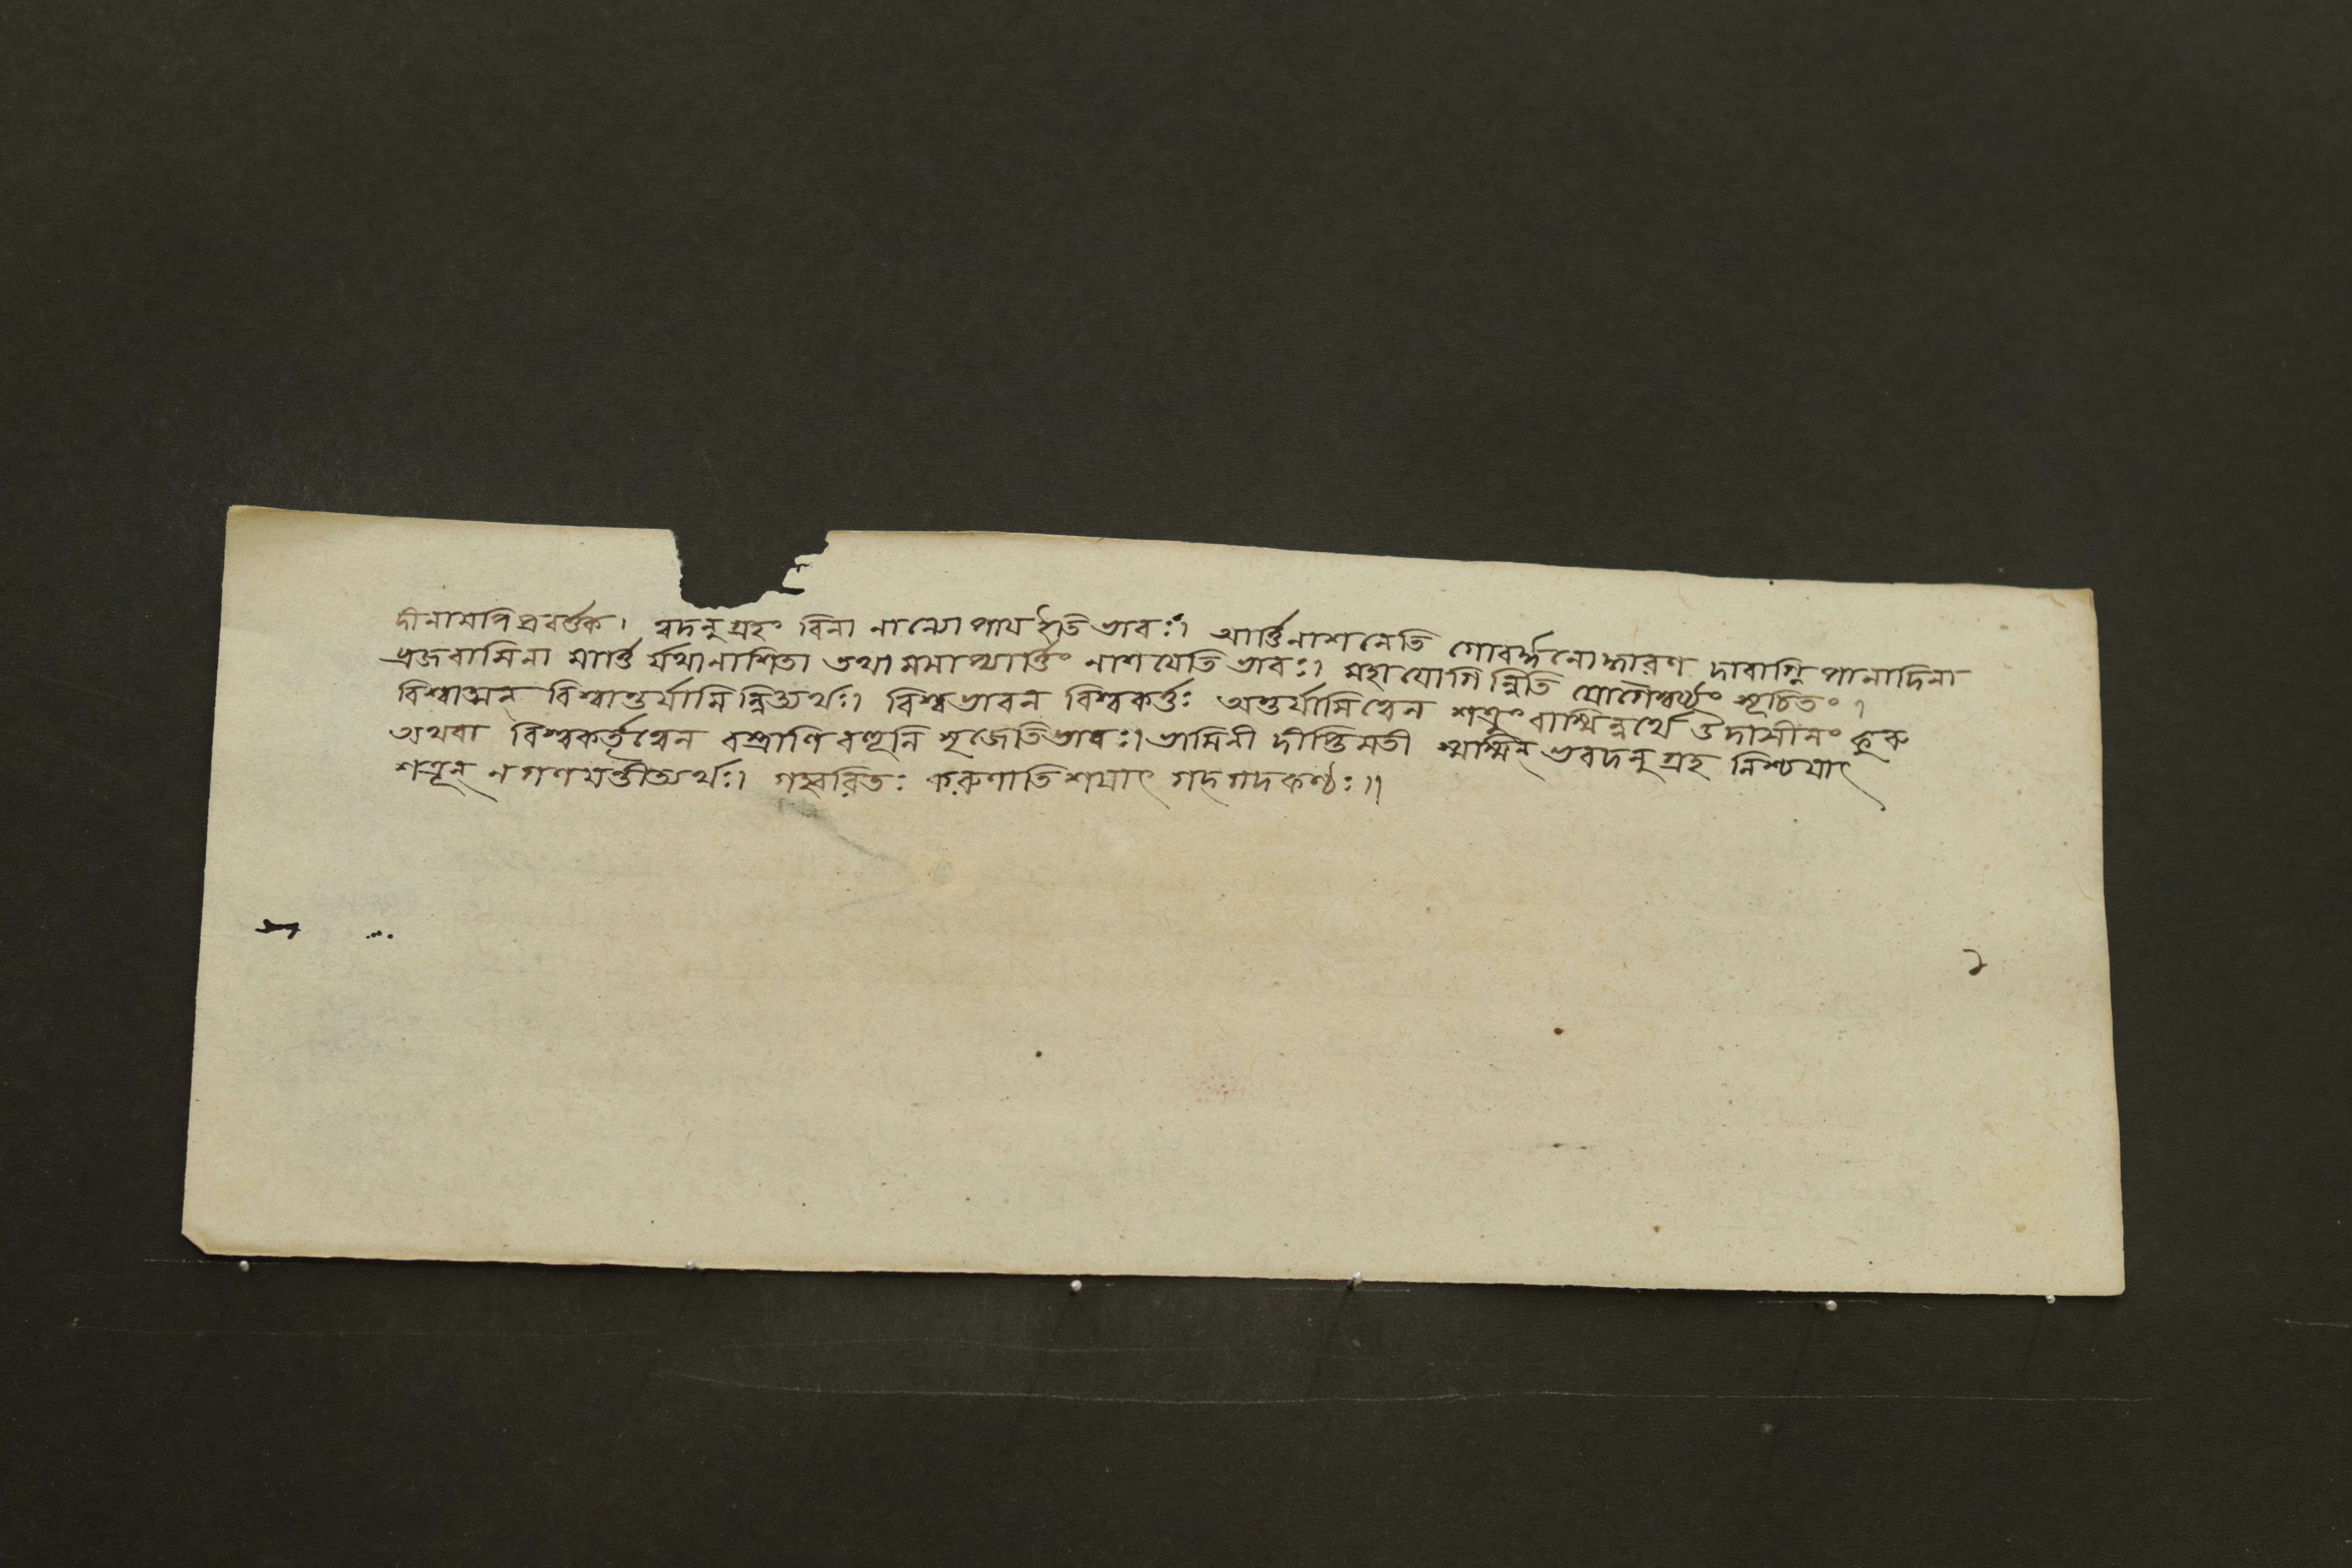 দীনামপি প্রবর্ত্তক। ত্বদনুগ্রহং বিনা নান্যোপায ইতি ভাবঃ। আর্ত্তিনাশনেতি গোবর্দ্ধনোদ্ধারণ দাবাগ্নি পানাদিনা
ব্রজবাসিনা মার্ত্তি র্যথা নাশিতা তথা মমাপ্যার্ত্তিং নাশযেতি ভাবঃ। মহাযোগিন্নিতি যোগৈশ্বর্য্যং সূচিতং।
বিশ্বাত্মন্ বিশ্বান্তর্যামিন্নিত্যর্থঃ। বিশ্বভাবন বিশ্বকর্ত্তঃ অন্তর্যামিত্বেন শত্রুং বাস্মিন্নর্থে ঔদাসীনং কুরু
অথবা বিশ্বকর্তৃত্বেন বস্ত্রাণি বহূনি সৃজেতি ভাবঃ। ভামিনী দীপ্তিমতী অস্মিন্ ভবদনুগ্রহ নিশ্চযাৎ
শত্রূন্ ন গণযন্তীত্যর্থঃ। করুণাতিশযাৎ গদ্গদকণ্ঠঃ॥
২